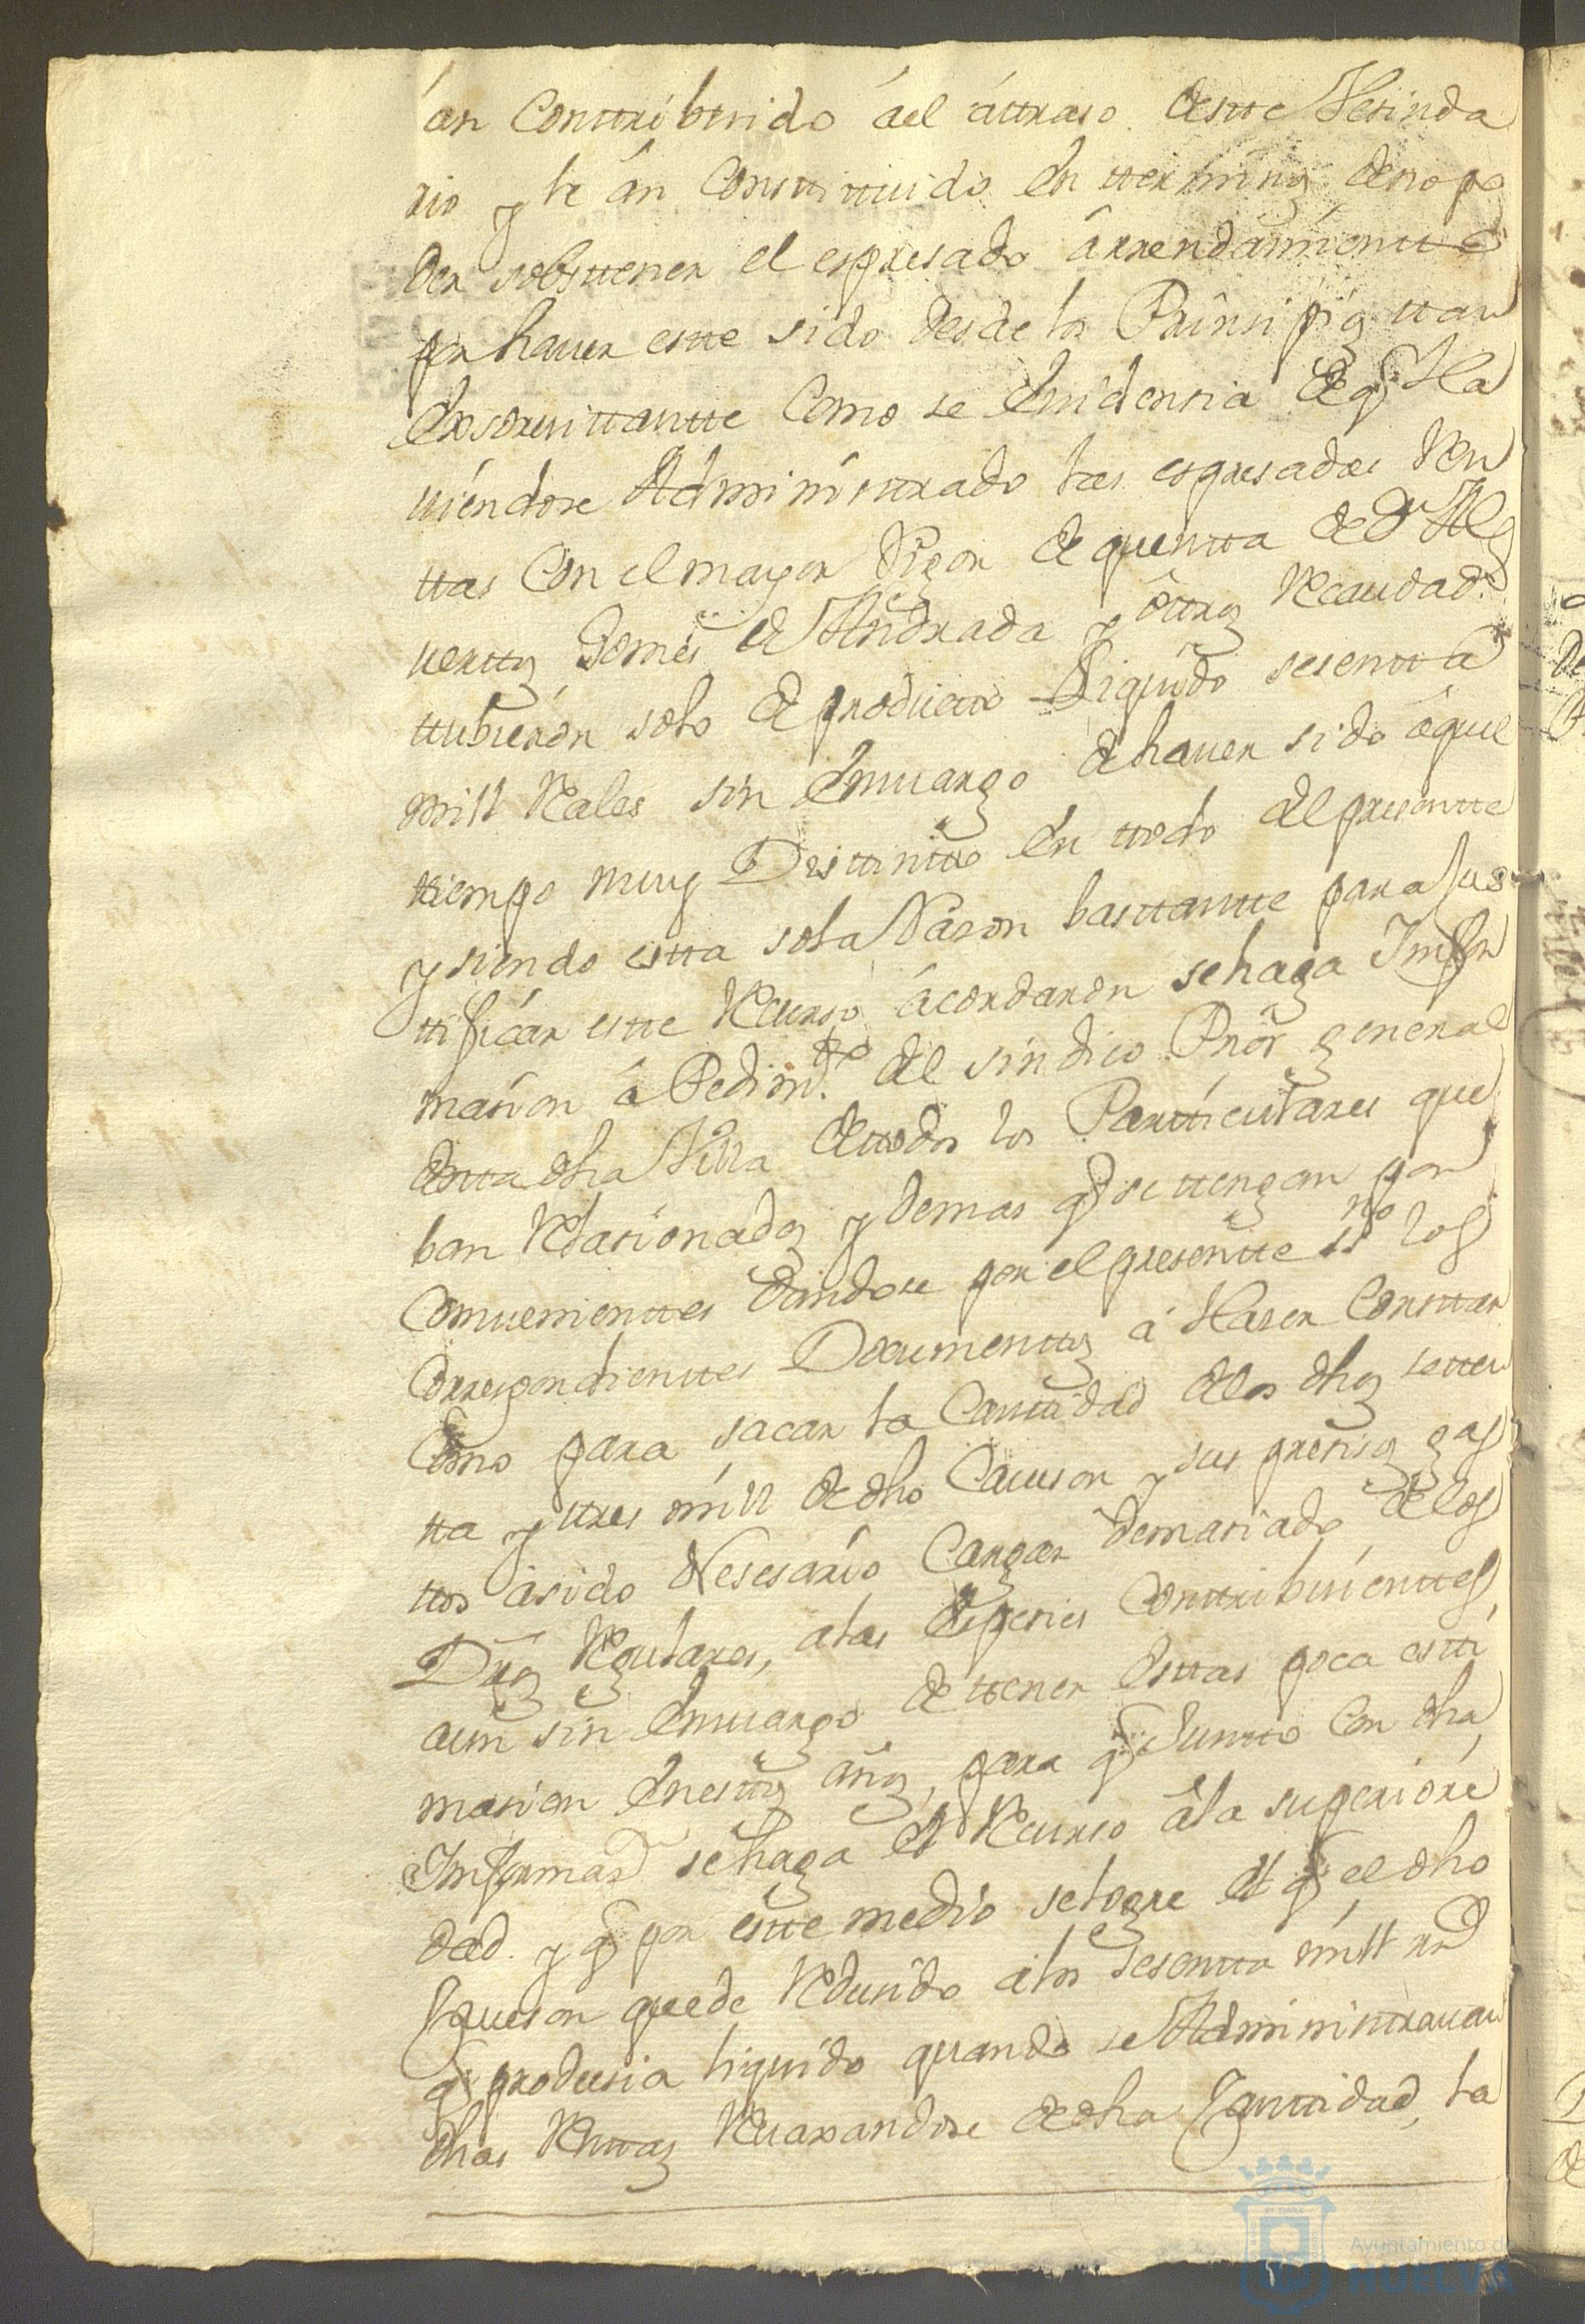 án Conttribuido áel áttraso destte Vesinda
rio y le án Consttittuido en ttérminos de no po
der sobsttener el espresado árrendamientto
por hauer estte sido desde los Prinsipios ttan
Exsorvittantte Como se Euidensia de q. Ha
uiéndose Administtrado las espresadas Ren
ttas Con el mayor Rigor de quentta de Dn. Al
uertto Gomes de Andrada y ottros Recaudad.s
ttubierón solo de productto Liquido sesentta
mill Reales sin Enuargo de hauer sido áquel
tiempo muy Disttintto en ttodo del presentte
y siendo estta sola Rason basttantte para Jus
ttificar estte Recurso ácordaron se haga Infor
masion á Pedim.to del sindico Prór general
destta dha Villa de ttodos los Partticulares que
ban Relasionados y demas q. se ttengan por
Comuenienttes dandose por el presentte ss.no los
Correspondienttes Documenttos á Haser Consttar
Como para sacar la Canttidad de los dhos setten
tta y ttres mill de dho Caueson y sus presisos gas
ttos ásido Nesesário Cargar demasiado de los
Dros Regulares, a las Espesies Conttribuienttes,
aun sin Enuargo de ttener Esttas poca estti
masion En esttos años, para q. Juntto Con dha
Informas.n se haga el Recurso á la superiori
dad. y q. por estte medio se logre el q. el dho
Caueson quede Redusido á los sesentta mill rr.s
q. produsia liquido quando se Administrauan
dhas Renttas Reuaxandose de dha Canttidad, la
Ayuntamiento de
HUELVA